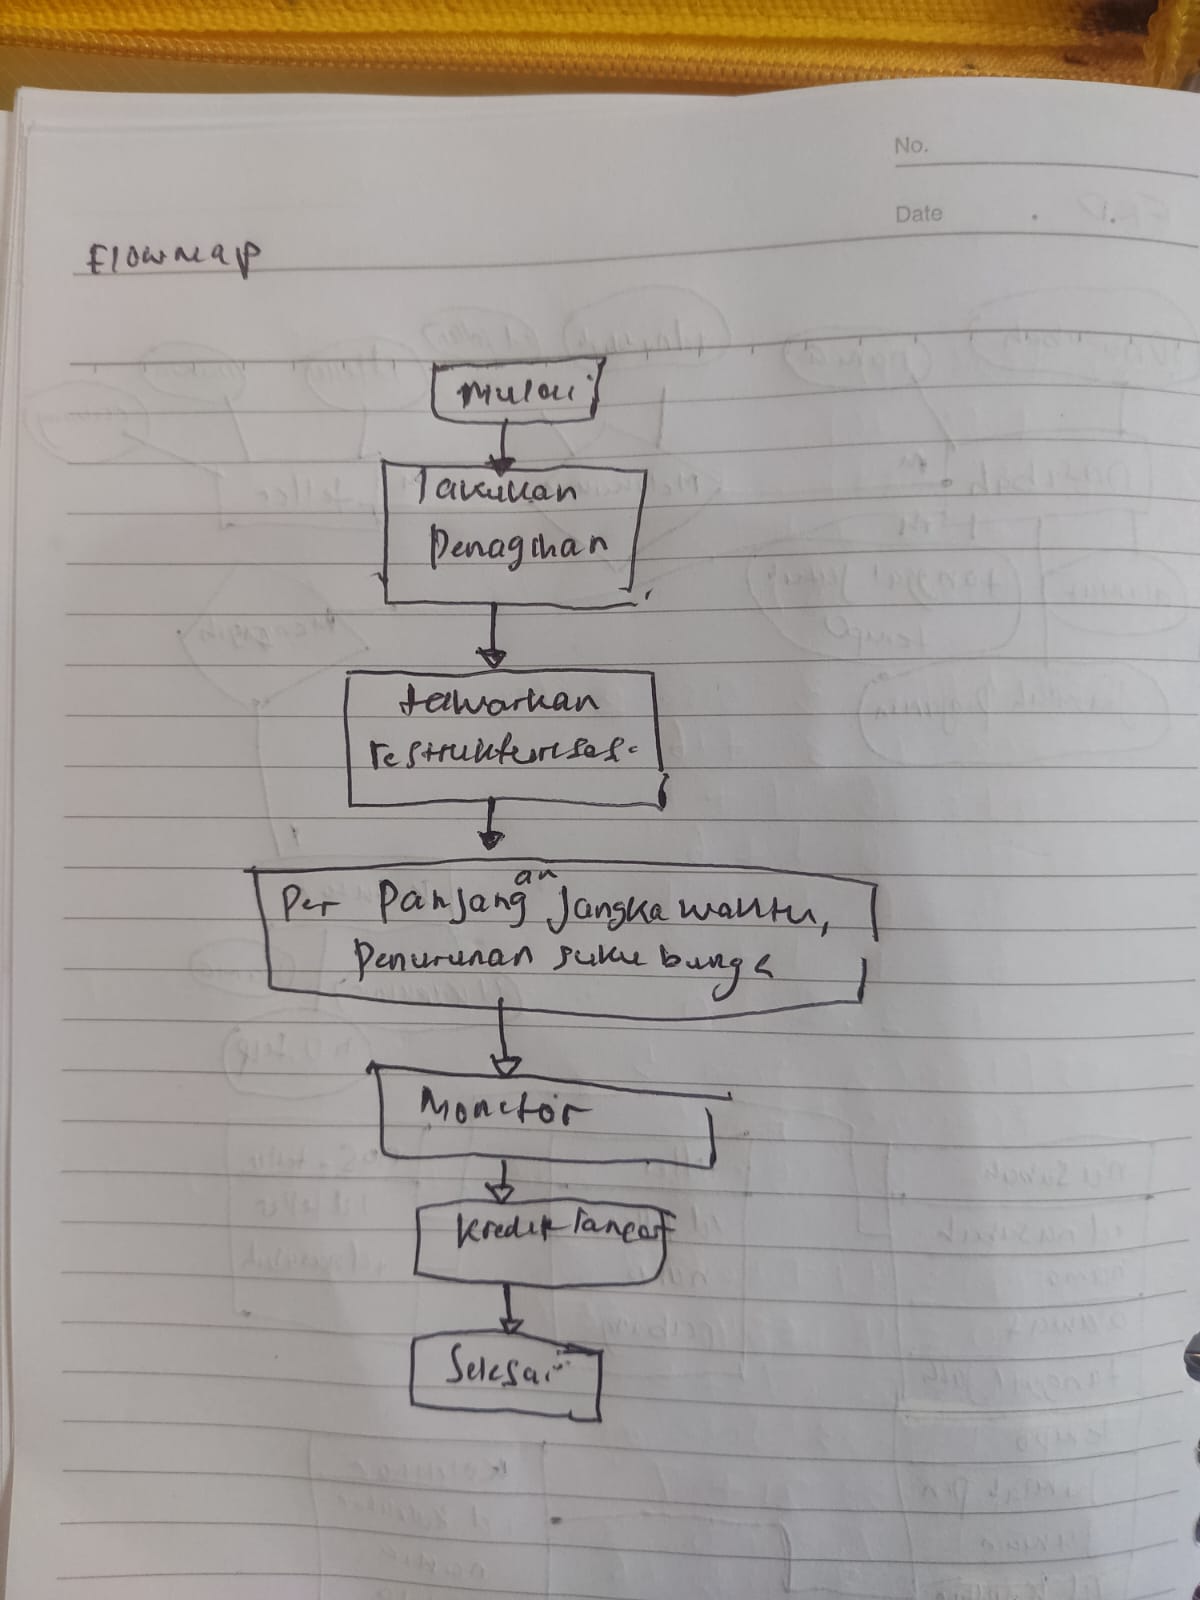 No.
Date
Flowmap
Mulai
lakukan
Penagihan
tawarkan
restrukturisasi
Perpanjangan jangka waktu,
Penurunan suku bunga
Monitor
Kredit lancar
Selesai